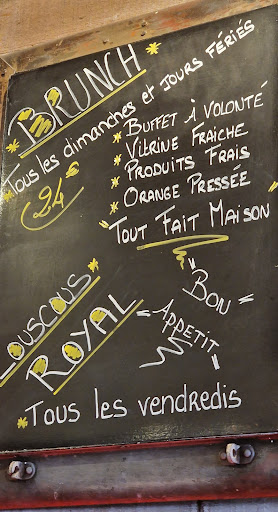 *BRUNCH*
Tous les dimanches et jours fériés
24€
* BUFFET À VOLONTÉ
* VITRINE FRAÎCHE
* PRODUITS FRAIS
* ORANGE PRESSÉE
TOUT FAIT MAISON
"BON
APPETIT"
COUSCOUS*
ROYAL
*TOUS LES VENDREDIS